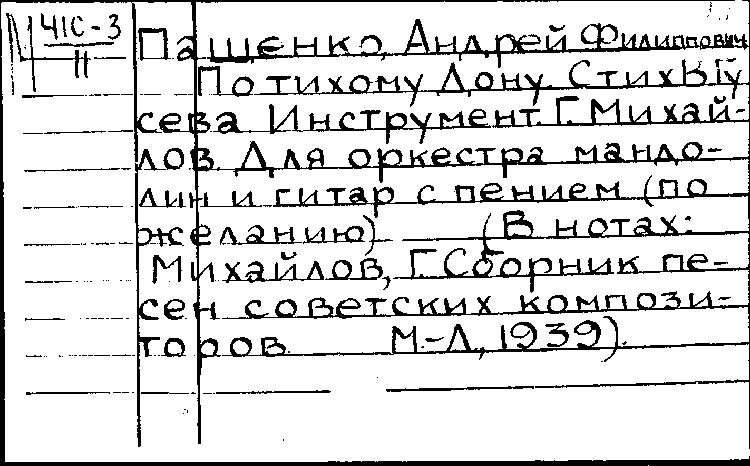 М 41С-3
II
Пащенко, Андрей Филиппович
По тихому Дону. Стихы Гу
сева Инструмент. Г. Михай-
лов. Для оркестра мандо-
лин и гитар с пением (по
желанию) (В нотах:
Михайлов, Г. Сборник пе-
сен советских компози-
торов. М.-Л., 1939).